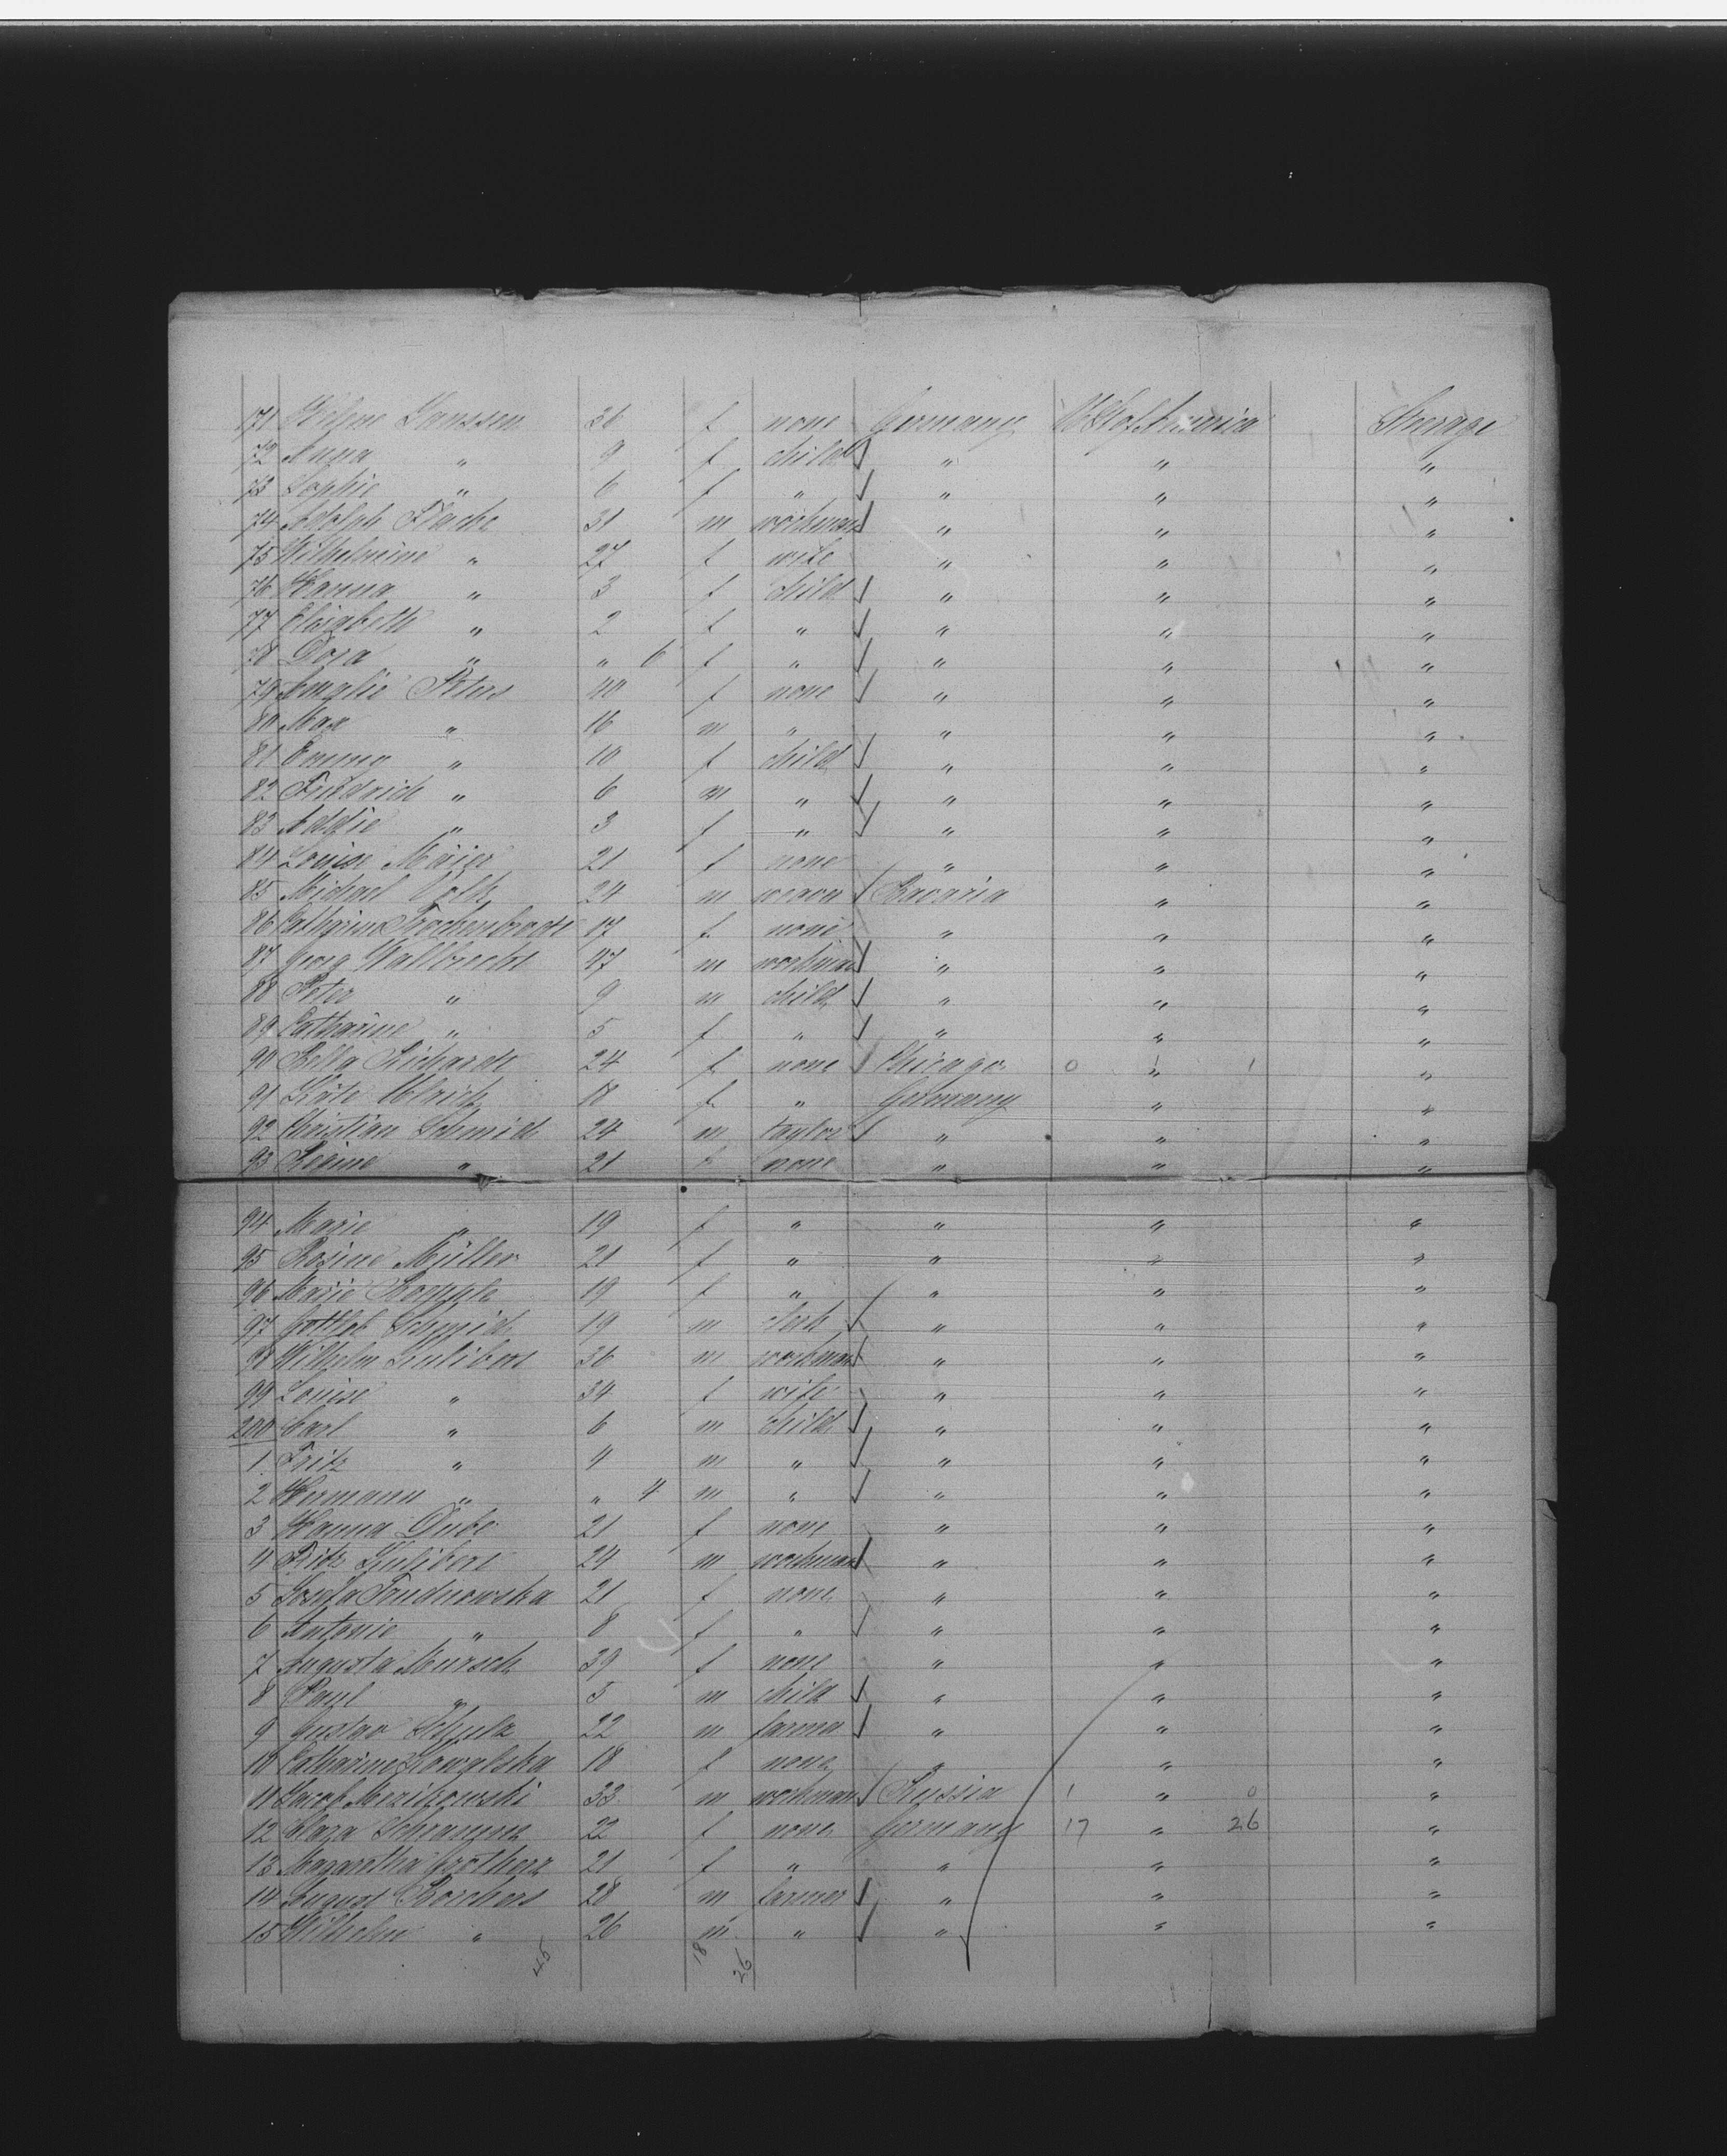 171 Helene Janssen 36 f none Germany U S of America Steerage
72 Anna " 9 f child " " "
73 Sophie " 6 f " " " "
74 Adolph 31 m workman " " "
75 Wilhelmine " 27 f wife " " "
76 Hanna " 3 f child " " "
77 Elisabeth " 2 f " " " "
78 Dora " " 6 f " " " "
79 Amalie Peters 40 f none " " "
80 Max " 16 m " " " "
81 Emma " 10 f child " " "
82 Friedrich " 6 m " " " "
83 " 3 f " " " "
84 Louise Maier 21 f none " " "
85 Michael Volk 24 m Bavaria " "
86 17 f none " " "
87 Georg Wallbrecht 47 m workman " " "
88 Peter " 9 m child " " "
89 Catharine " 5 f " " " "
90 Bella Richards 24 f none Chicago 0 " 1 "
91 Käte Ulrich 18 f " Germany " "
92 Christian Schmid 24 m taylor " " "
93 Regine " 21 f none " " "
94 Marie " 19 f " " " "
95 Rosine Müller 21 f " " " "
96 Marie 19 f " " " "
97 Gottlob Schmid 19 m clerk " " "
98 Wilhelm 36 m workman " " "
99 Louise " 34 f wife " " "
200 Carl " 6 m child " " "
1 Fritz " 4 m " " " "
2 Hermann " " 4 m " " " "
3 Hanna Dube 21 f none " " "
4 Fritz 24 m workman " " "
5 21 f none " " "
6 Antonie " 8 f " " " "
7 Augusta Mursch 39 f none " " "
8 Paul " 5 m child " " "
9 Gustav Schulz 22 m farmer " " "
10 Catharine Kowalska 18 f none " " "
11 Jacob 33 m workman Russia 1 " 0 "
12 Clara Schramm 22 f none Germany 17 " 26 "
13 Magaretha 21 f " " " "
14 August Borchers 28 m farmer " " "
15 Wilhelm " 26 m " " " "
45 18 26